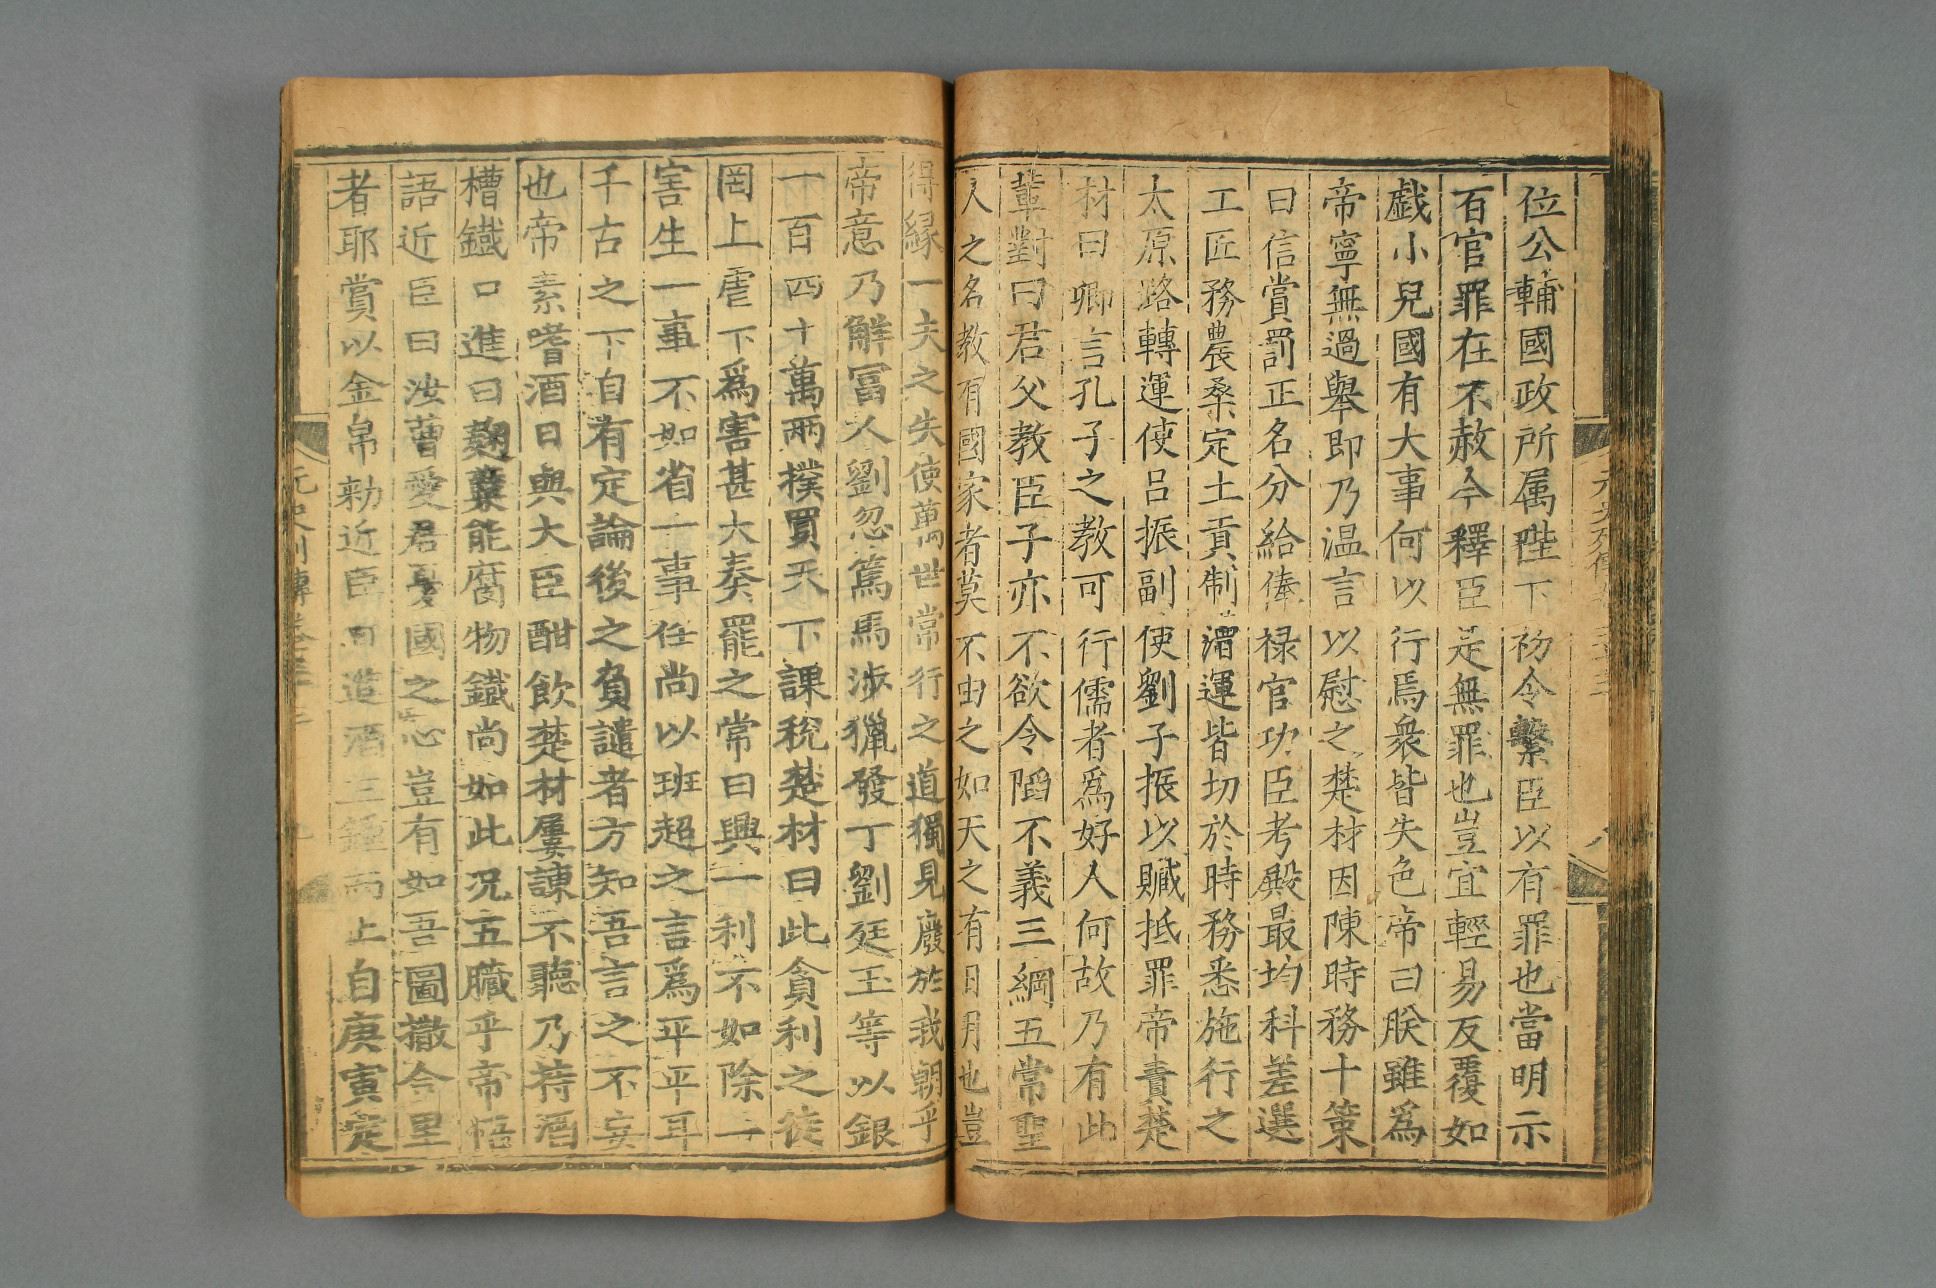 位公輔國政所属陛下初令繫臣以有罪也當明示
百官罪在不赦今釋臣是無罪也豈宜輕易反覆如
戯小兒國有大事何以行焉衆皆失色帝曰朕雖爲
帝寧無過舉即乃温言以慰之楚材因陳時務十策
曰信賞罰正名分給俸禄官功臣考殿最均科差選
工匠務農桑定土貢制漕運皆切於時務悉施行之
太原路轉運使吕振副使劉子振以贓抵罪帝責楚
材曰卿言孔子之教可行儒者爲好人何故乃有此
輩對曰君父教臣子亦不欲令䧟不義三綱五常聖
人之名教有國家者莫不由之如天之有日月也豈
得縁一夫之失使萬世常行之道獨見廢於我朝乎
帝意乃解冨人劉忽篤馬涉獵發丁劉廷玉等以銀
一百四十萬兩撲買天下課稅楚材曰此貪利之徒
罔上虐下爲害甚大奏罷之常曰興一利不如除一
害生一事不如省一事任尚以班超之言爲平平耳
千古之下自有定論後之負譴者方知吾言之不妄
也帝素嗜酒日與大臣酣飲楚材屢諫不聽乃持酒
槽鐵口進曰麴糵能腐物鐵尚如此况五臟乎帝悟
語近臣曰汝曹愛君憂國之心豈有如吾圖撒合里
者耶賞以金帛勑近臣日進酒三鍾而止自庚寅定
元史列傳卷三十三
八
元史列傳卷三十三
九